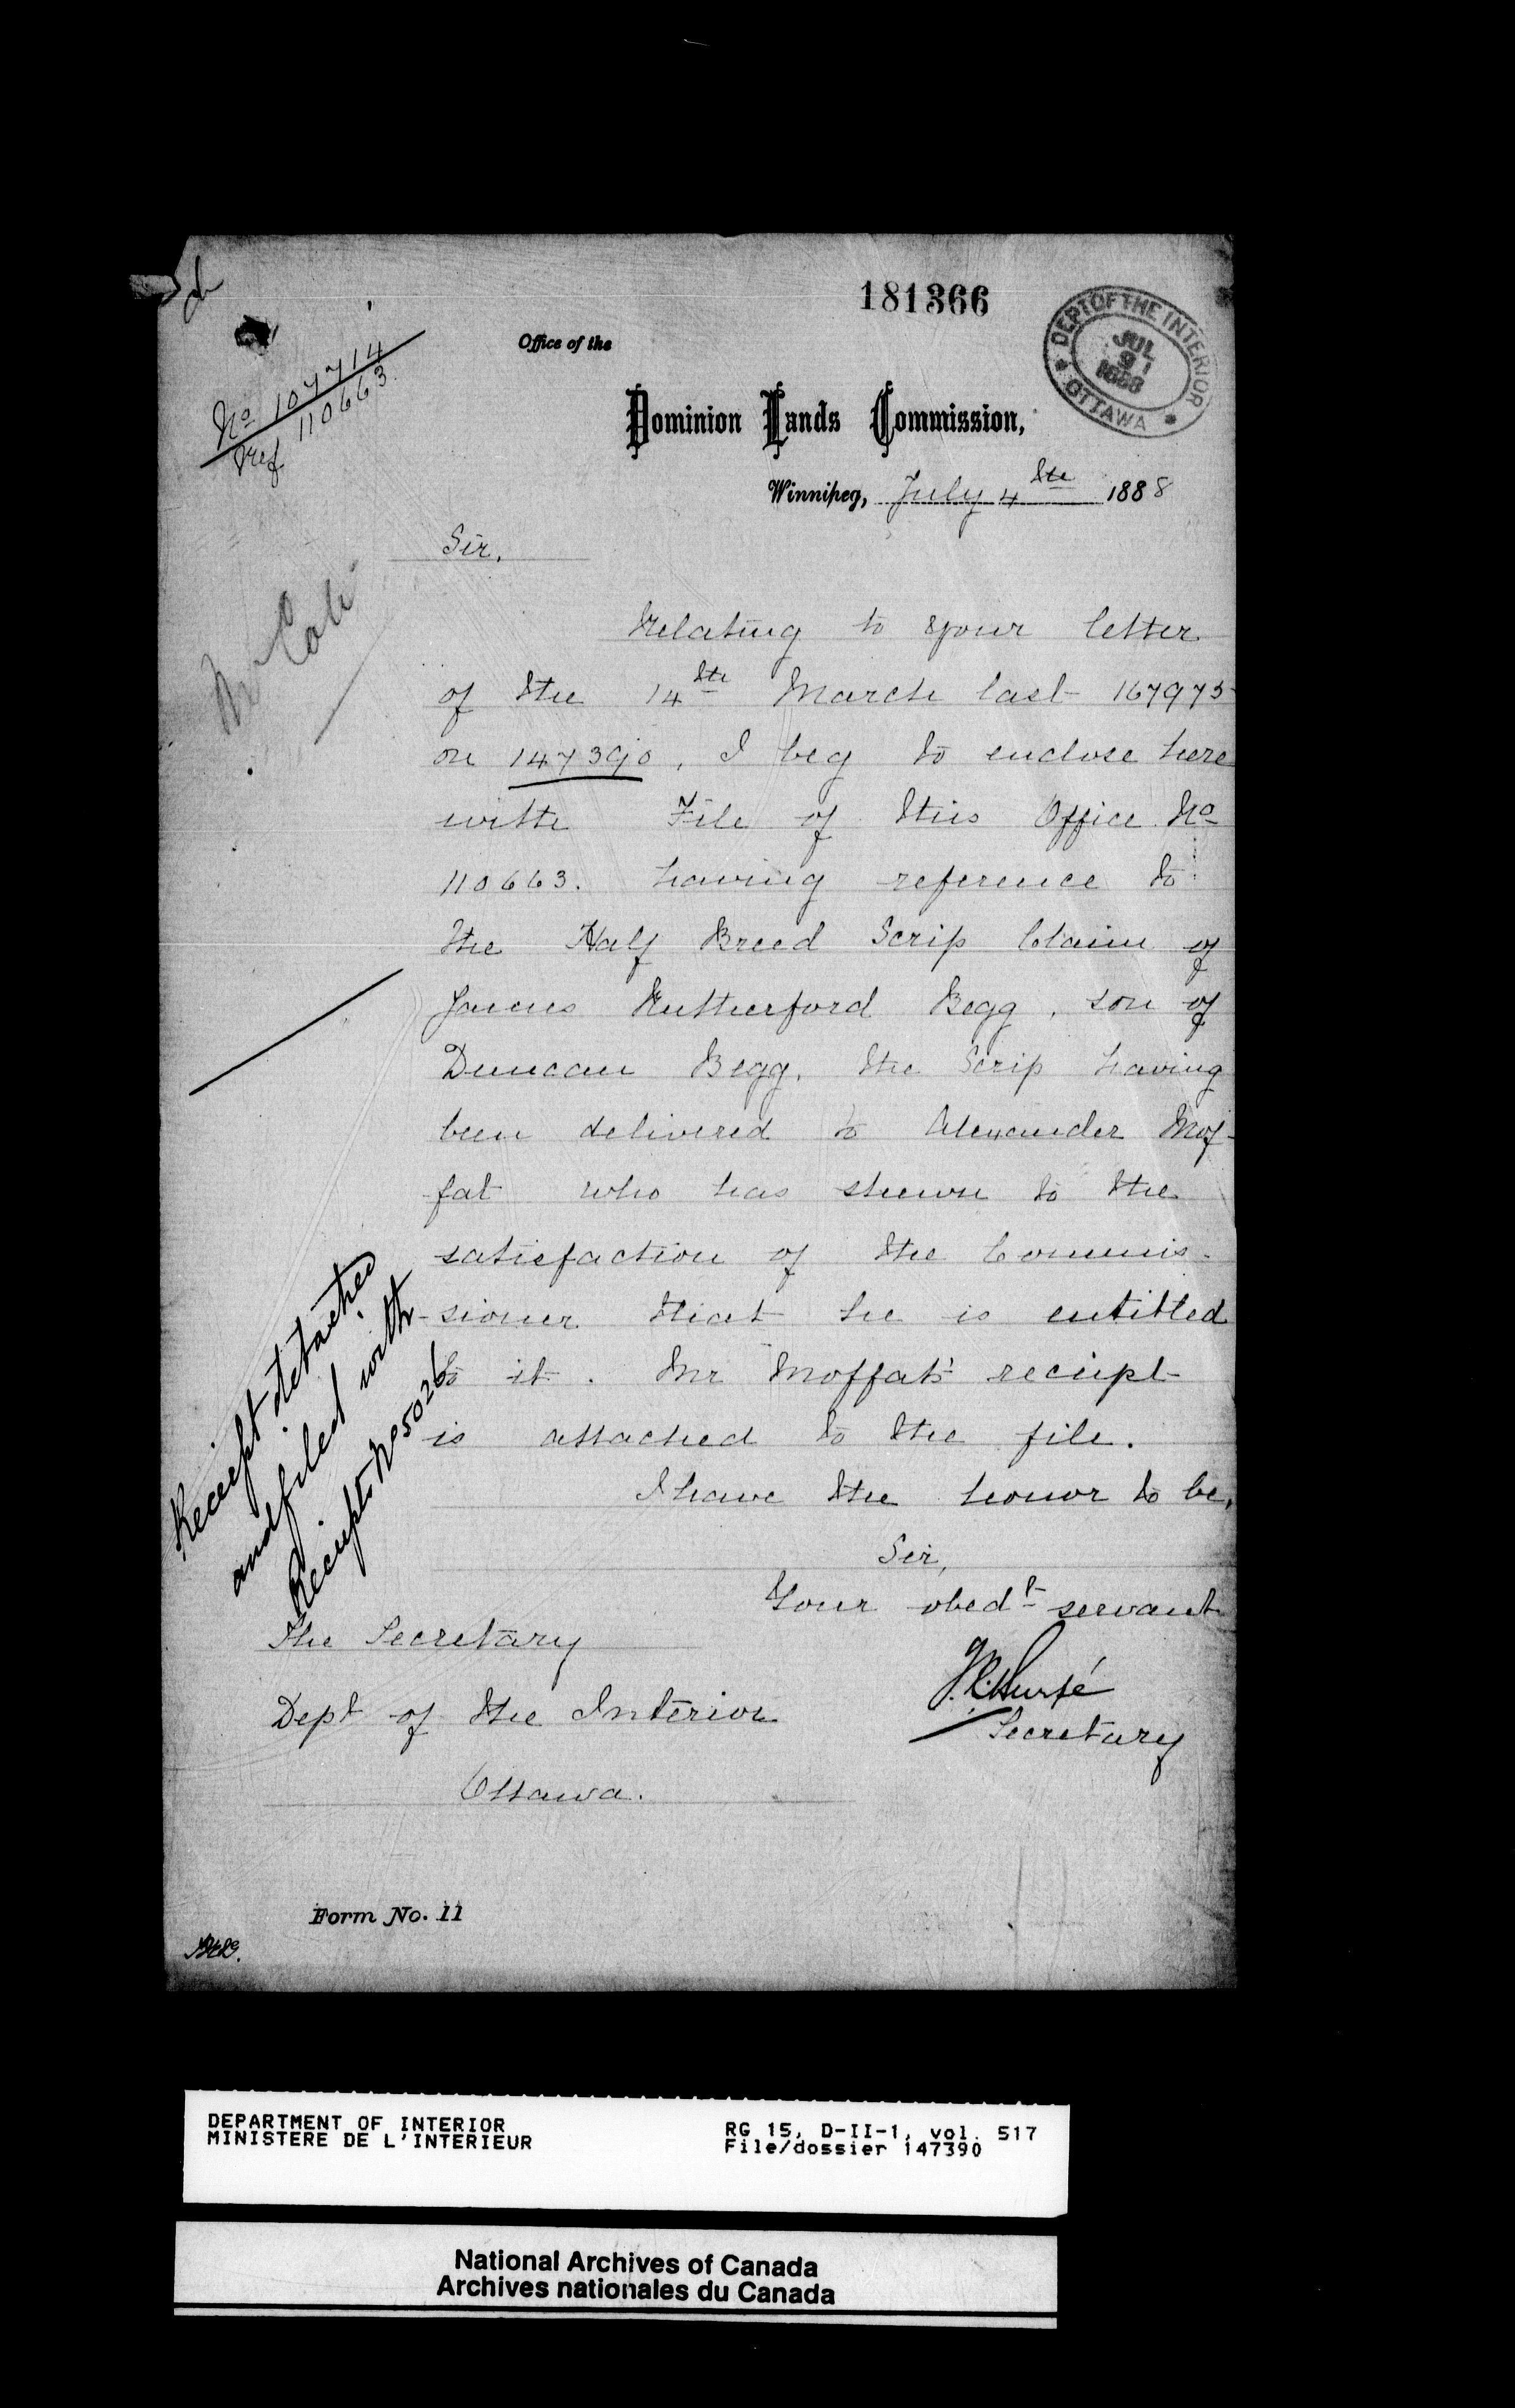 181366
DEPT OF THE INTERIOR
JUL
9
1888
OTTAWA
No 107714
ref 110663
Office of the
Dominion Lands Commission,
Winnipeg, July 4th 1888
Sir,
Relating to your letter
of the 14th March last 167975
on 147390, I beg to enclose here
with File of this Office No
110663. having reference to
the Half Breed Scrip Claim of
James Rutherford Begg, son of
Duncan Begg, the Scrip having
been delivered to Alexander Mof-
fat who has shewn to the
satisfaction of the Commis-
sioner that he is entitled
to it. Mr Moffat's receipt
is attached to the file.
I have the honor to be,
Sir,
Your obedt servant
Secretary
Receipt detached
and filed with
Receipt No 5026
The Secretary
Dept of the Interior
Ottawa.
Form No. 11
DEPARTMENT OF INTERIOR
MINISTERE DE L'INTERIEUR
RG 15, D-II-1, vol. 517
File/dossier 147390
National Archives of Canada
Archives nationales du Canada